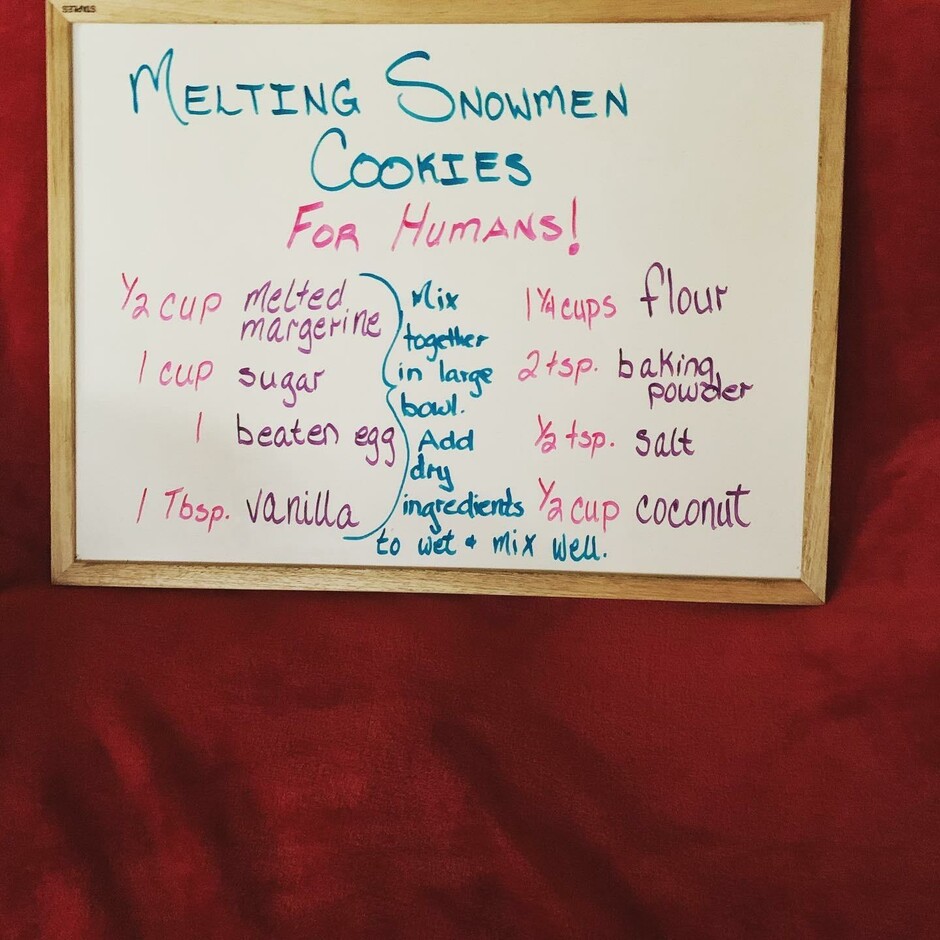 STAPLES
MELTING SNOWMEN
COOKIES
FOR HUMANS!
1/2 cup melted
margerine
1 cup sugar
1 beaten egg
1 Tbsp. vanilla
Mix
together
in large
bowl.
Add
dry
ingredients
to wet & mix well.
1 1/4 cups flour
2 tsp. baking
powder
1/2 tsp. salt
1/2 cup coconut